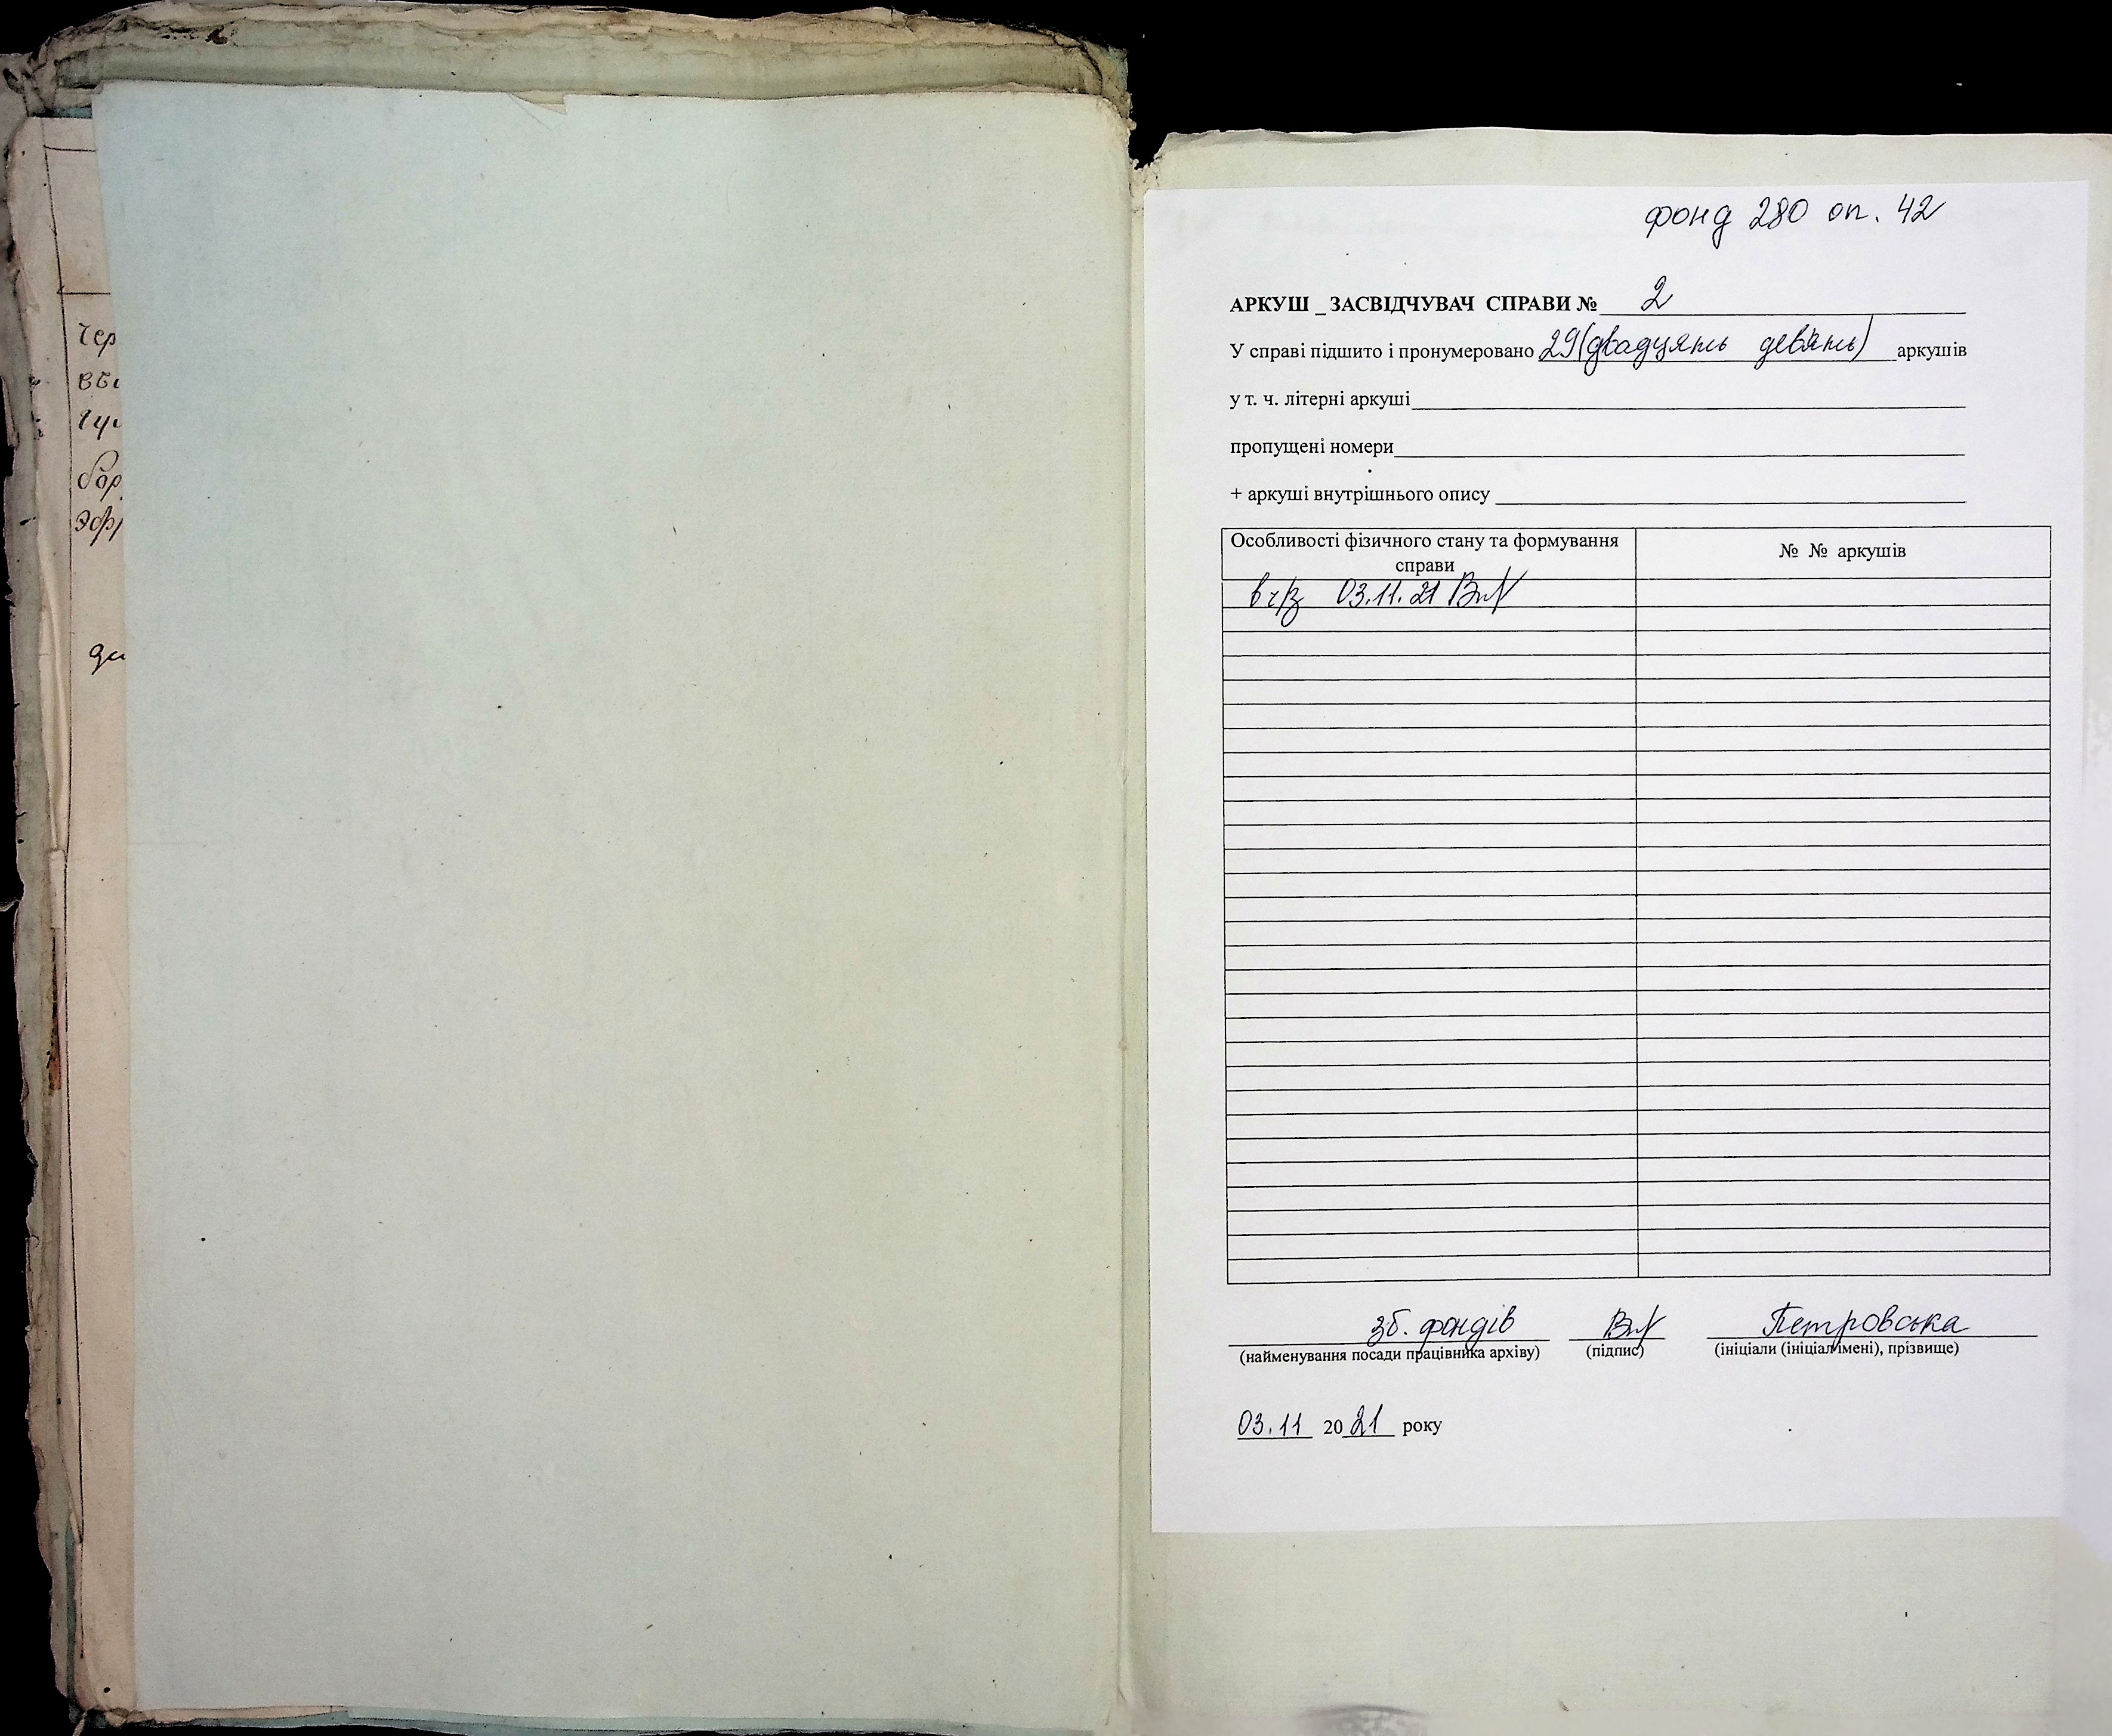 фонд 280 оп. 42
АРКУШ _ ЗАСВІДЧУВАЧ СПРАВИ № 2
У справі підшито і пронумеровано 29 (двадцять дев'ять) аркушів
у т. ч. літерні аркуші
пропущені номери
+ аркуші внутрішнього опису
Особливості фізичного стану та формування справи
№ № аркушів
03.11.21
зб. фондів
Петровська
(найменування посади працівника архіву) (підпис) (ініціали (ініціал імені), прізвище)
03.11 2021 року